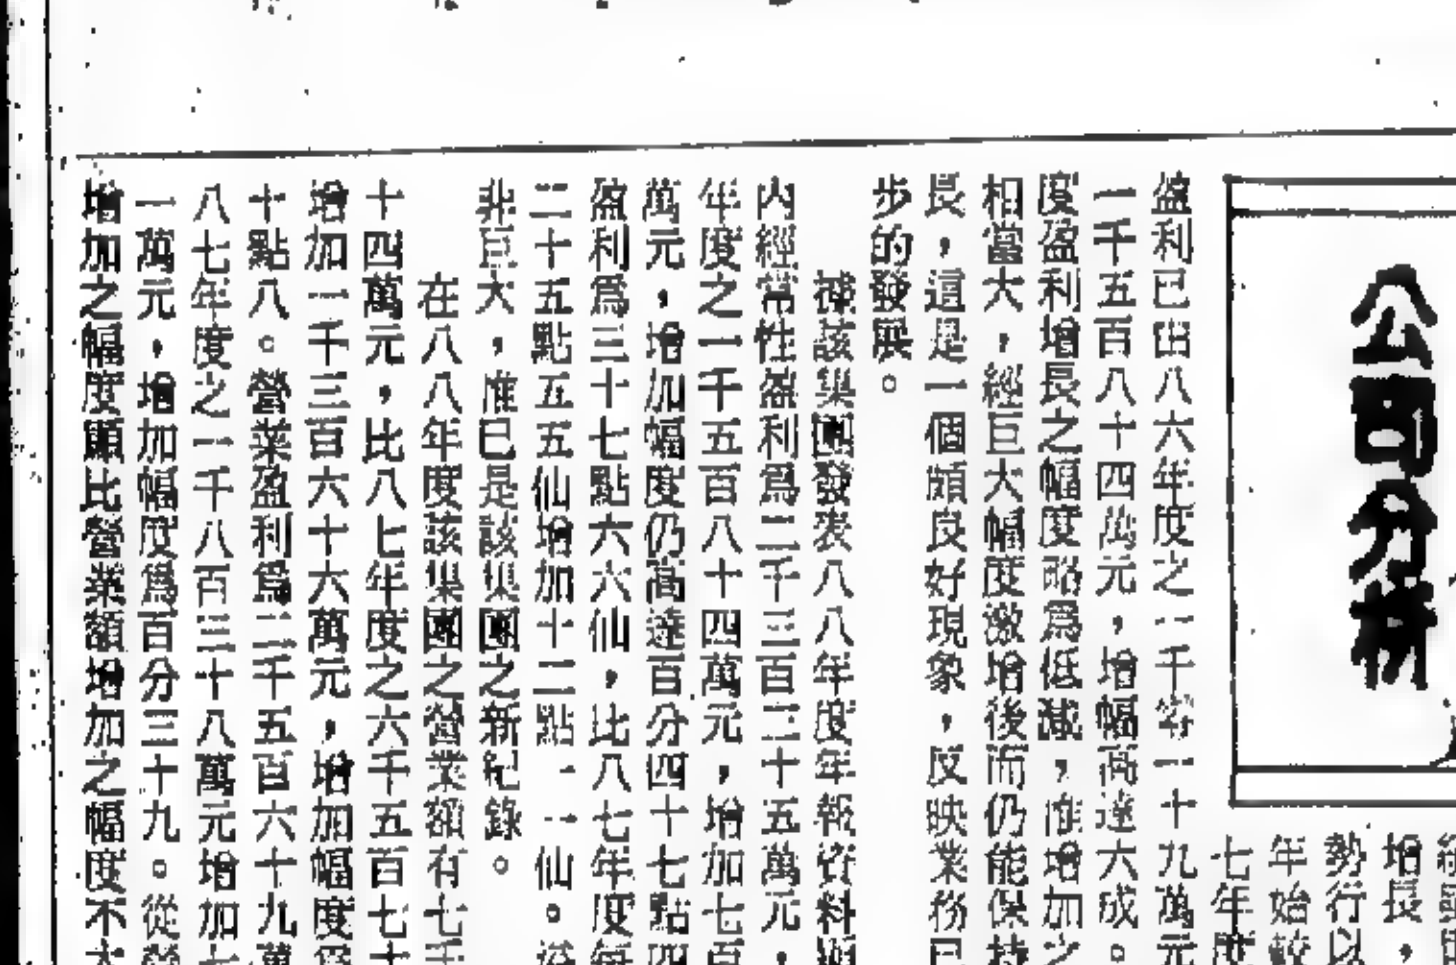 公司分析
增長，
勢行以
年始較
七年度
盈利已由八六年度之一千零一十九萬元
一千五百八十四萬元，增幅高達六成。
度盈利增長之幅度略爲低減，惟增加之
相當大，經巨大幅度激增後而仍能保持
長，這是一個頗良好現象，反映業務已
步的發展。
據該集團發表八八年度年報資料顯
內經常性盈利爲二千三百三十五萬元，
年度之一千五百八十四萬元，增加七百
萬元，增加幅度仍高達百分四十七點四
盈利爲三十七點六六仙，比八七年度每
二十五點五五仙增加十二點一一仙。
非巨大，惟已是該集團之新紀錄。
在八八年度該集團之營業額有七千
十四萬元，比八七年度之六千五百七十
增加一千三百六十六萬元，增加幅度爲
十點八。營業盈利爲二千五百六十九萬
八七年度之一千八百三十八萬元增加七
一萬元，增加幅度爲百分三十九。從營
增加之幅度顯比營業額增加之幅度不大